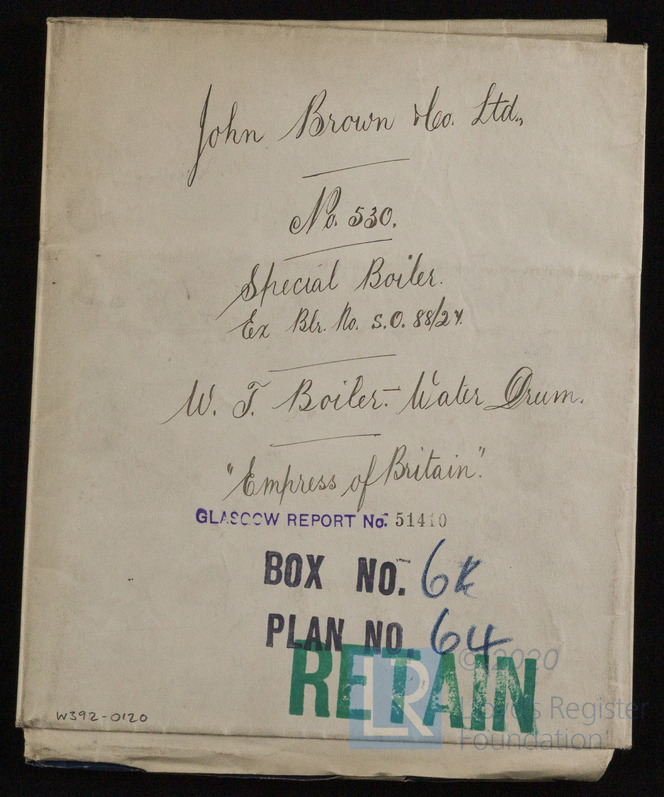 John Brown & Co. Ltd.,
No. 530.
Special Boiler.
Ex Blr. No. S.O. 88/24.
W. T. Boiler:- Water Drum.
"Empress of Britain".
GLASGOW REPORT No. 51410
BOX NO.
PLAN NO. 64
RETAIN
W392-0120
LR
© 2020
Lloyd's Register
Foundation